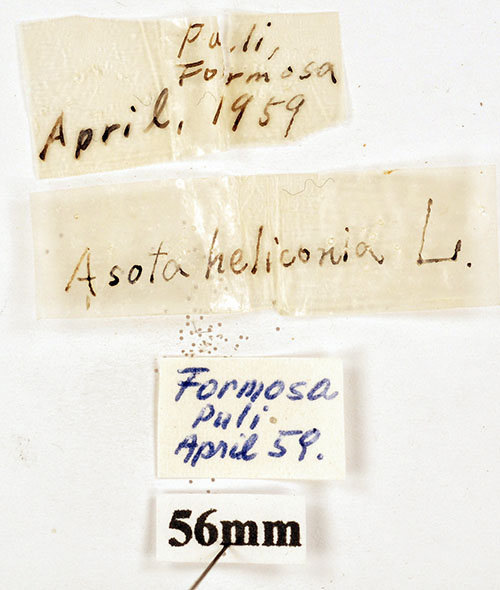 Puli,
Formosa
April, 1959
Asota heliconia L.
Formosa
Puli
April 59.
56mm